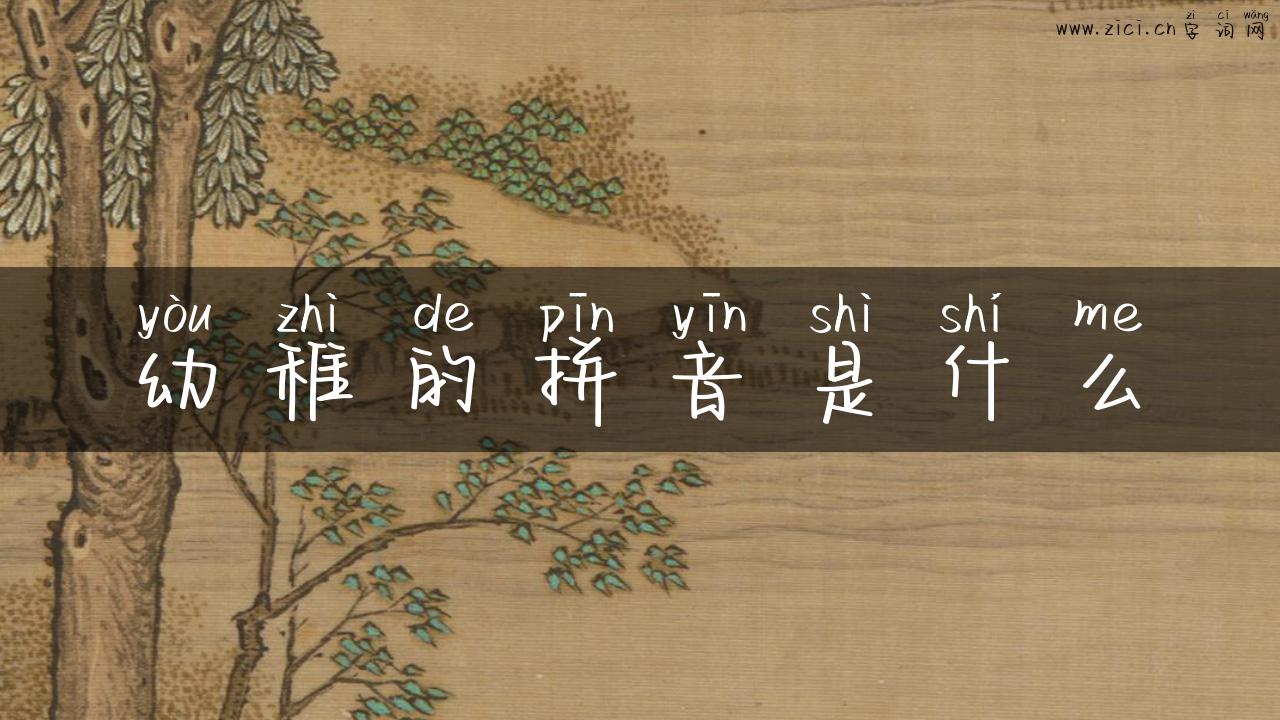 zì cí wǎng
www.zici.cn 字 词 网
yòu zhì de pīn yīn shì shí me
幼 稚 的 拼 音 是 什 么